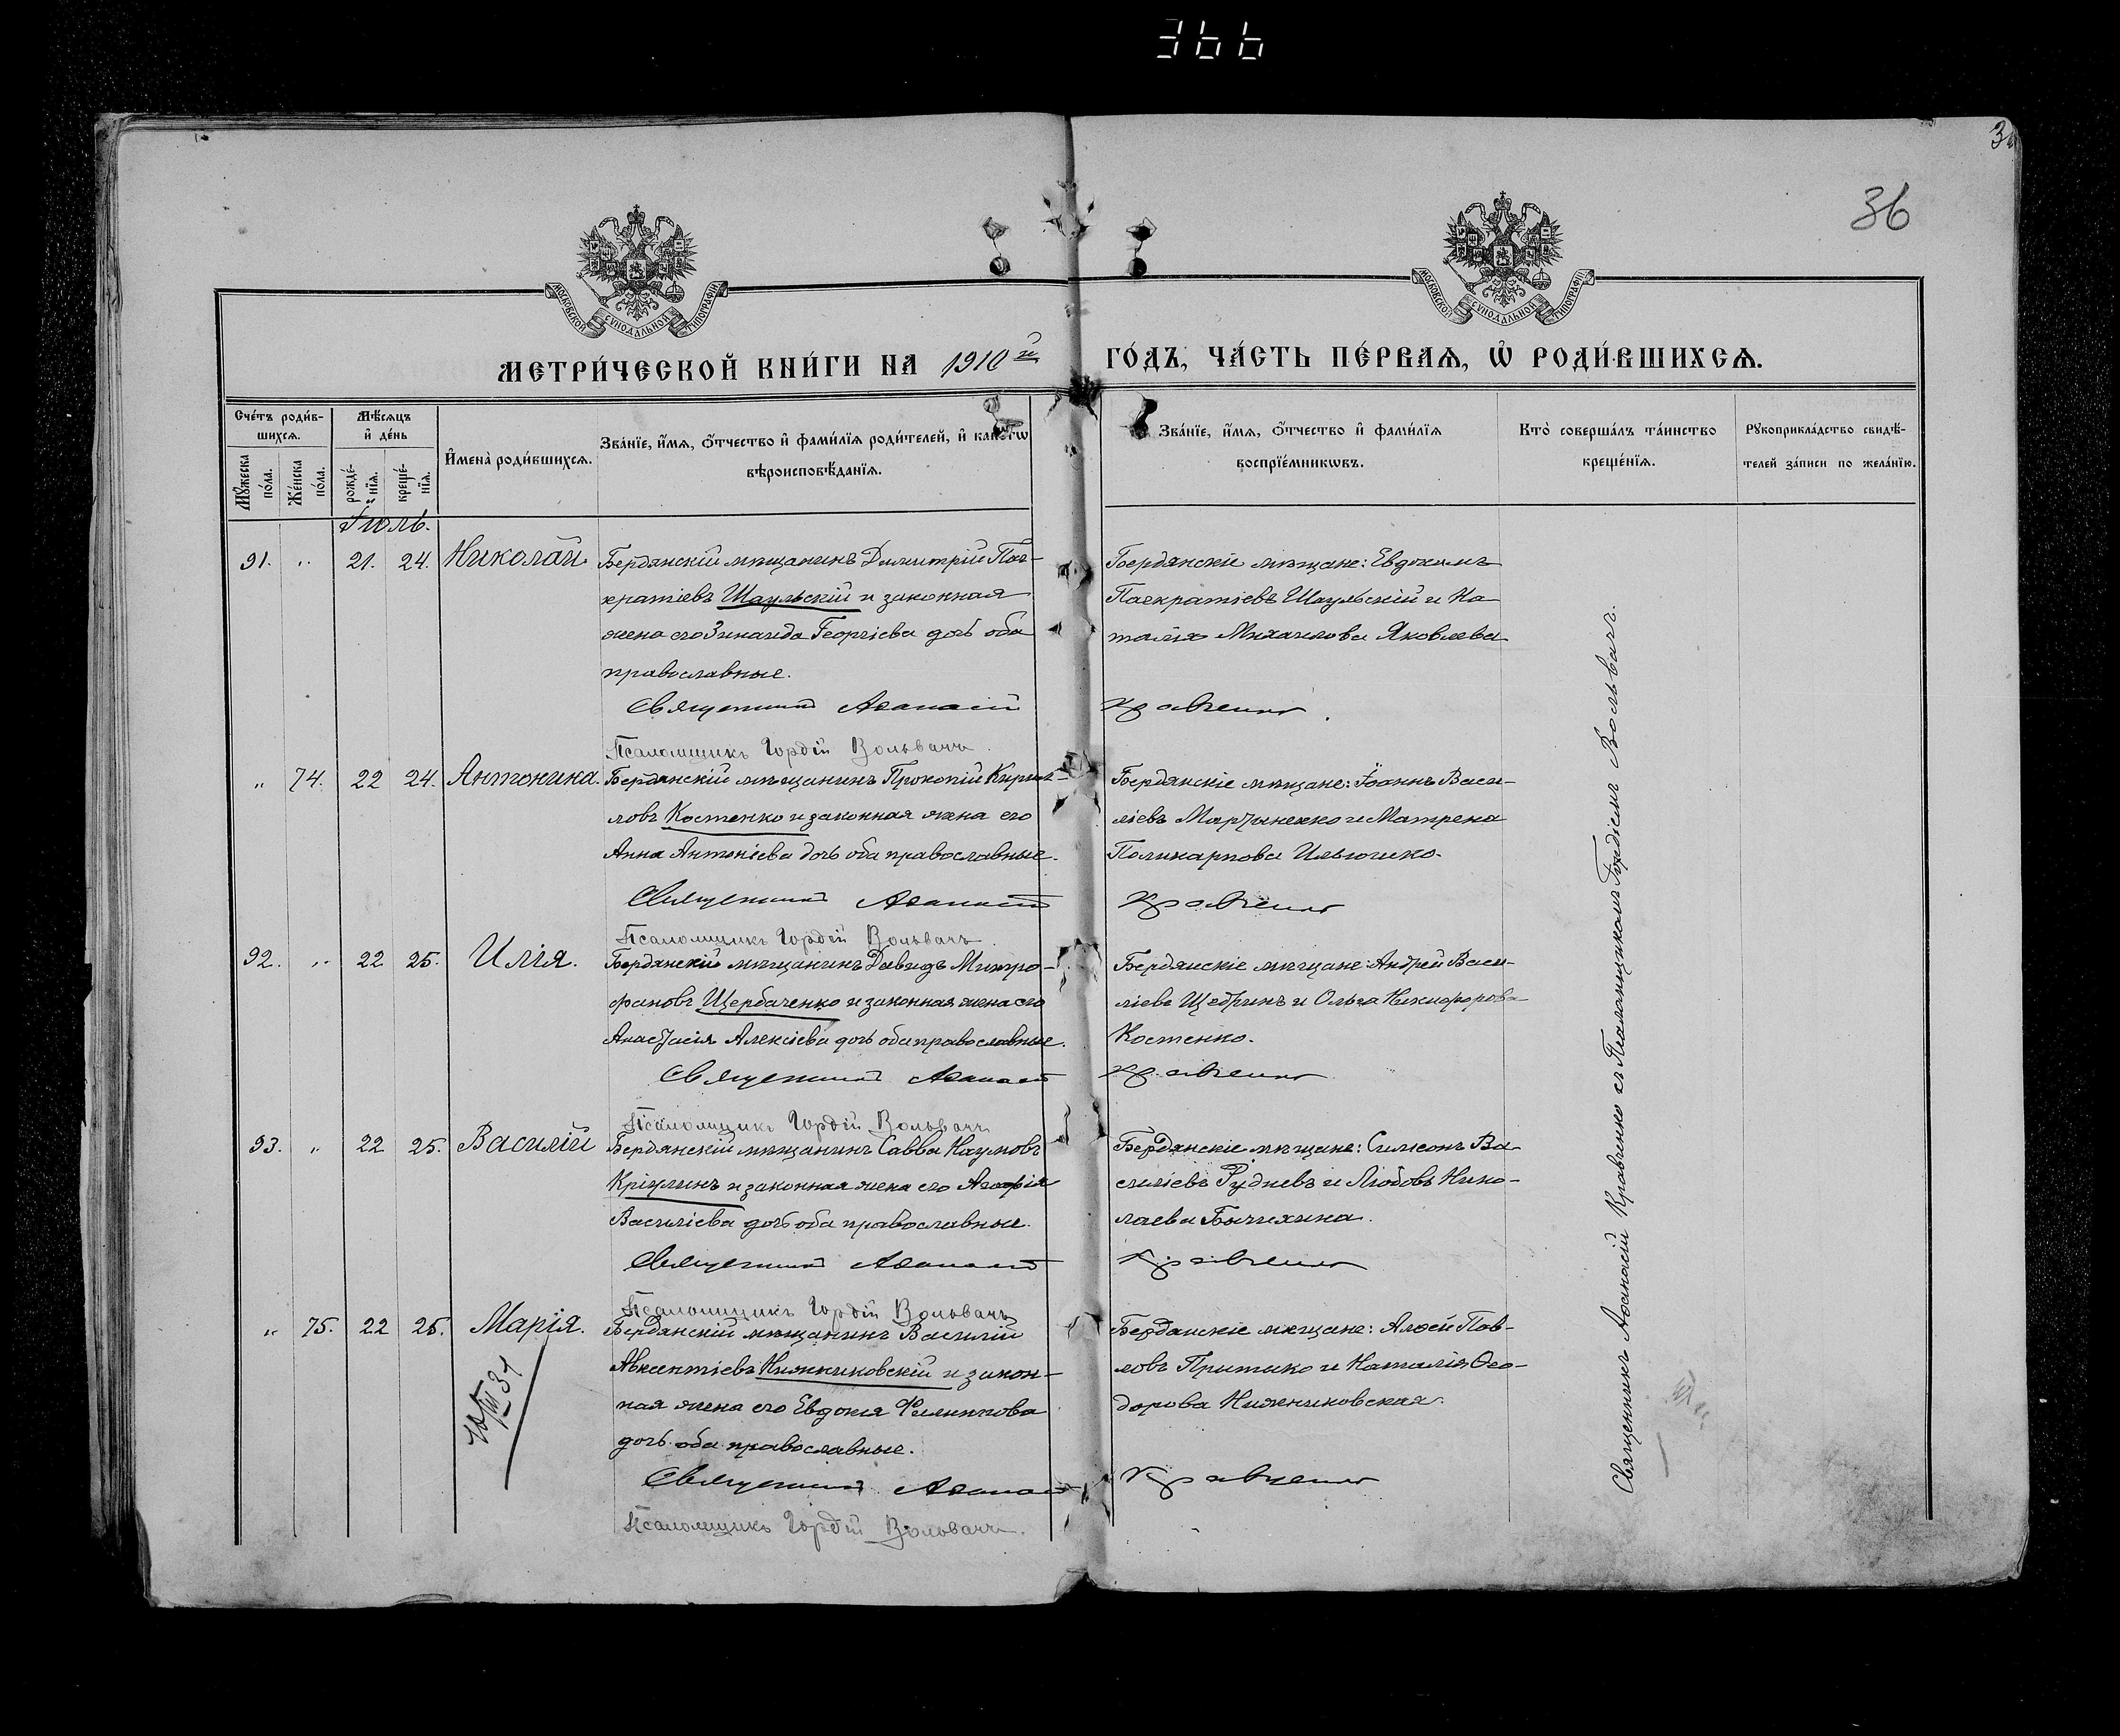 366
36
МОСКОВСКОЙ СѴНОДАЛЬНОЙ ТИПОГРАФІИ
МОСКОВСКОЙ СѴНОДАЛЬНОЙ ТИПОГРАФІИ
МЕТРИ́ЧЕСКОЙ КНИ́ГИ НА 1910й ГО́ДЪ, ЧА́СТЬ ПЕ́РВАѦ, Ѡ РОДИ́ВШИХСѦ.
Сче́тъ роди́вшихсѧ.
Мꙋ́жеска по́ла.
Же́нска по́ла.
Мѣ́сѧцъ и҆ де́нь
рожде́-нїѧ.
креще́-нїѧ.
И҆мена̀ роди́вшихсѧ.
Зва́нїе, и҆́мѧ, ѻ҆́тчество и҆ фами́лїѧ роди́телей, и҆ како́гѡ
вѣроисповѣ́данїѧ.
Зва́нїе, и҆́мѧ, ѻ҆́тчество и҆ фами́лїѧ
воспрїе́мникѡвъ.
Кто̀ соверша́лъ та́инство
креще́нїѧ.
Рꙋкоприкла́дство свидѣ́-
телей за́писи по жела́нїю.
Іюль.
91. „ 21. 24. Николай.
Бердянскій мѣщанинъ Димитрій Пан-
кратіевъ Шаульскій и законная
жена его Зинаида Георгіева дочь оба
православные.
Священникъ Аѳанасій Кравченко.
Псаломщикъ Гордій Вольвачъ.
Бердянскіе мѣщане: Евдокимъ
Панкратіевъ Шаульскій и На-
талія Михаилова Яковлева
„ 74. 22 24. Антонина.
Бердянскій мѣщанинъ Прокопій Кирил-
ловъ Костенко и законная жена его
Анна Антоніева дочь оба православные.
Священникъ Аѳанасій Кравченко
Псаломщикъ Гордій Вольвачъ.
Бердянскіе мѣщане: Іоаннъ Васи-
ліевъ Мартыненко и Матрена
Поликарпова
92. „ 22 25. Илія.
Бердянскій мѣщанинъ Давидъ Митро-
фановъ Щербаченко и законная жена его
Анастасія Алексіева дочь оба православные.
Священникъ Аѳанасій Кравченко
Псаломщикъ Гордій Вольвачъ
Бердянскіе мѣщане: Андрей Васи-
ліевъ Щедринъ и Ольга Никифорова
Костенко.
93. „ 22 25. Василій
Бердянскій мѣщанинъ Савва Наумовъ
и законная жена его Агафія
Василіева дочь оба православные.
Священникъ Аѳанасій Кравченко
Псаломщикъ Гордій Вольвачъ
Бердянскіе мѣщане: Симеонъ Ва-
силіевъ Рудневъ и Любовь Нико-
лаева Бычихина.
„ 75. 22 25. Марія.
Бердянскій мѣщанинъ Василій
Авксентіевъ Нижниковскій и закон-
ная жена его Евдокія Филиппова
дочь оба православные.
Священникъ Аѳанасій Кравченко
Псаломщикъ Гордій Вольвачъ.
Бердянскіе мѣщане: Алфей Пав-
ловъ Притико и Наталія Ѳео-
дорова Нижниковская.
Священникъ Аѳанасій Кравченко съ Псаломщикомъ Гордіемъ Вольвачъ.